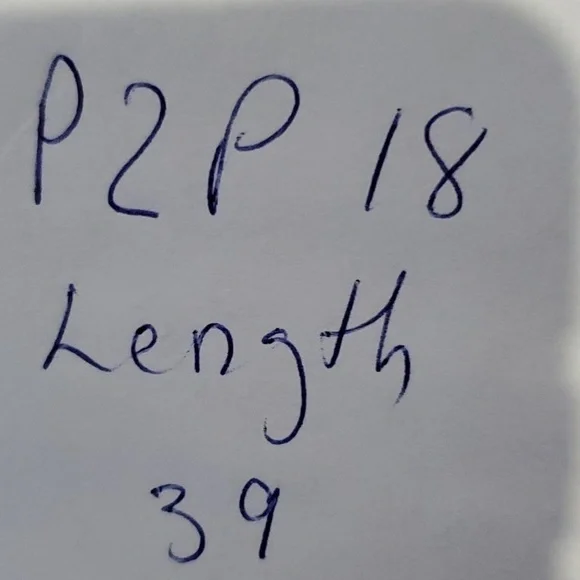 P2P 18
Length
39